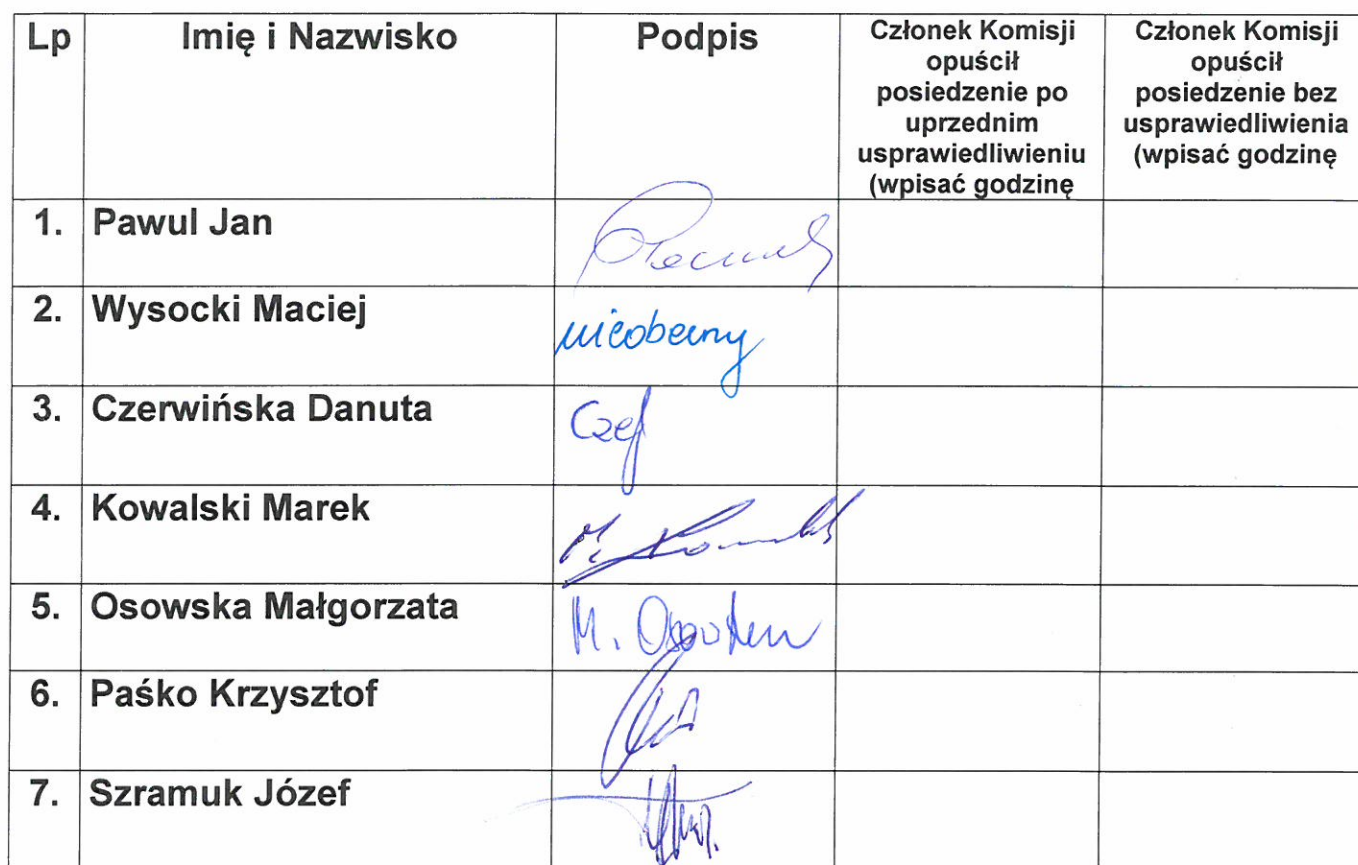 Lp Imię i Nazwisko Podpis Członek Komisji opuścił posiedzenie po uprzednim usprawiedliwieniu (wpisać godzinę Członek Komisji opuścił posiedzenie bez usprawiedliwienia (wpisać godzinę
1. Pawul Jan
2. Wysocki Maciej nieobecny
3. Czerwińska Danuta
4. Kowalski Marek
5. Osowska Małgorzata M.
6. Paśko Krzysztof
7. Szramuk Józef